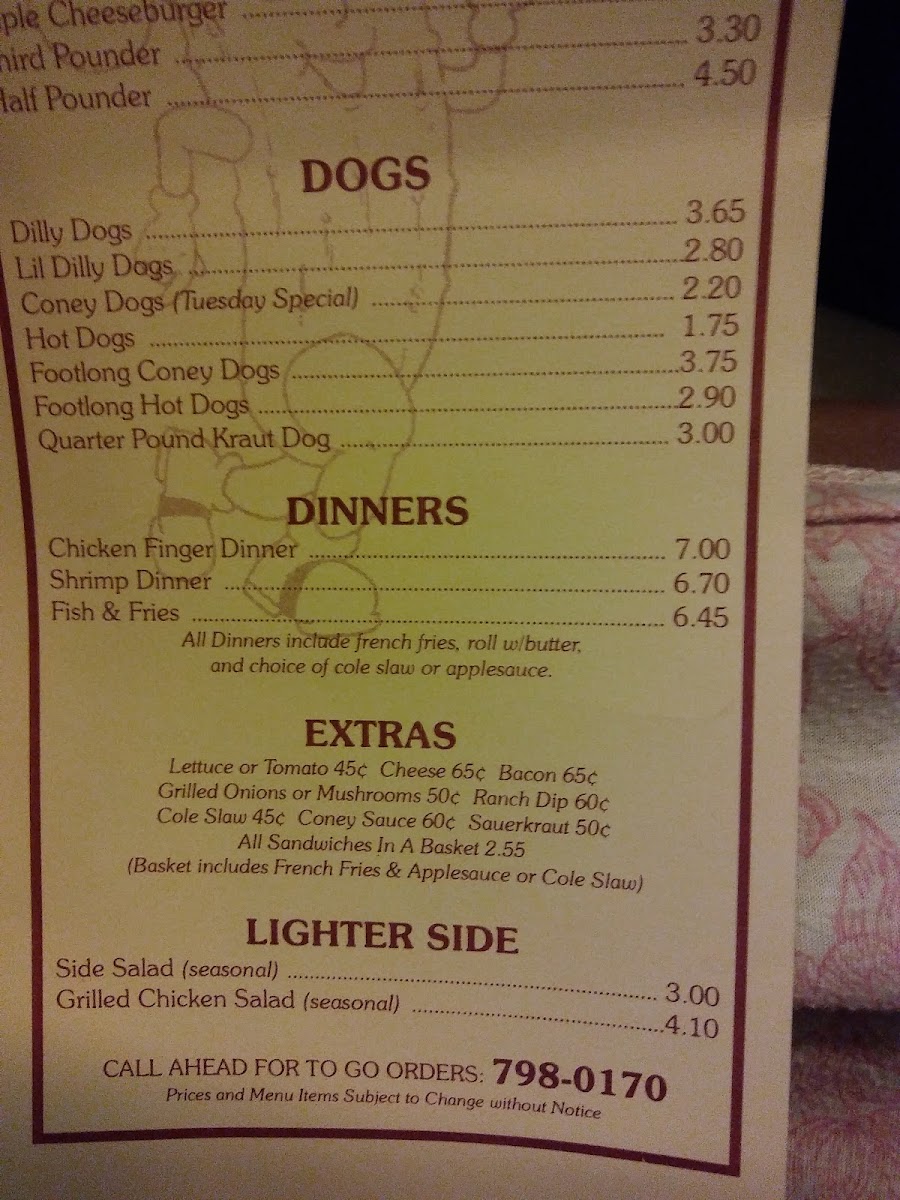 ple Cheeseburger
hird Pounder 3.30
Half Pounder 4.50
DOGS
Dilly Dogs 3.65
Lil Dilly Dogs 2.80
Coney Dogs (Tuesday Special) 2.20
Hot Dogs 1.75
Footlong Coney Dogs 3.75
Footlong Hot Dogs 2.90
Quarter Pound Kraut Dog 3.00
DINNERS
Chicken Finger Dinner 7.00
Shrimp Dinner 6.70
Fish & Fries 6.45
All Dinners include french fries, roll w/butter,
and choice of cole slaw or applesauce.
EXTRAS
Lettuce or Tomato 45¢ Cheese 65¢ Bacon 65¢
Grilled Onions or Mushrooms 50¢ Ranch Dip 60¢
Cole Slaw 45¢ Coney Sauce 60¢ Sauerkraut 50¢
All Sandwiches In A Basket 2.55
(Basket includes French Fries & Applesauce or Cole Slaw)
LIGHTER SIDE
Side Salad (seasonal) 3.00
Grilled Chicken Salad (seasonal) 4.10
CALL AHEAD FOR TO GO ORDERS: 798-0170
Prices and Menu Items Subject to Change without Notice